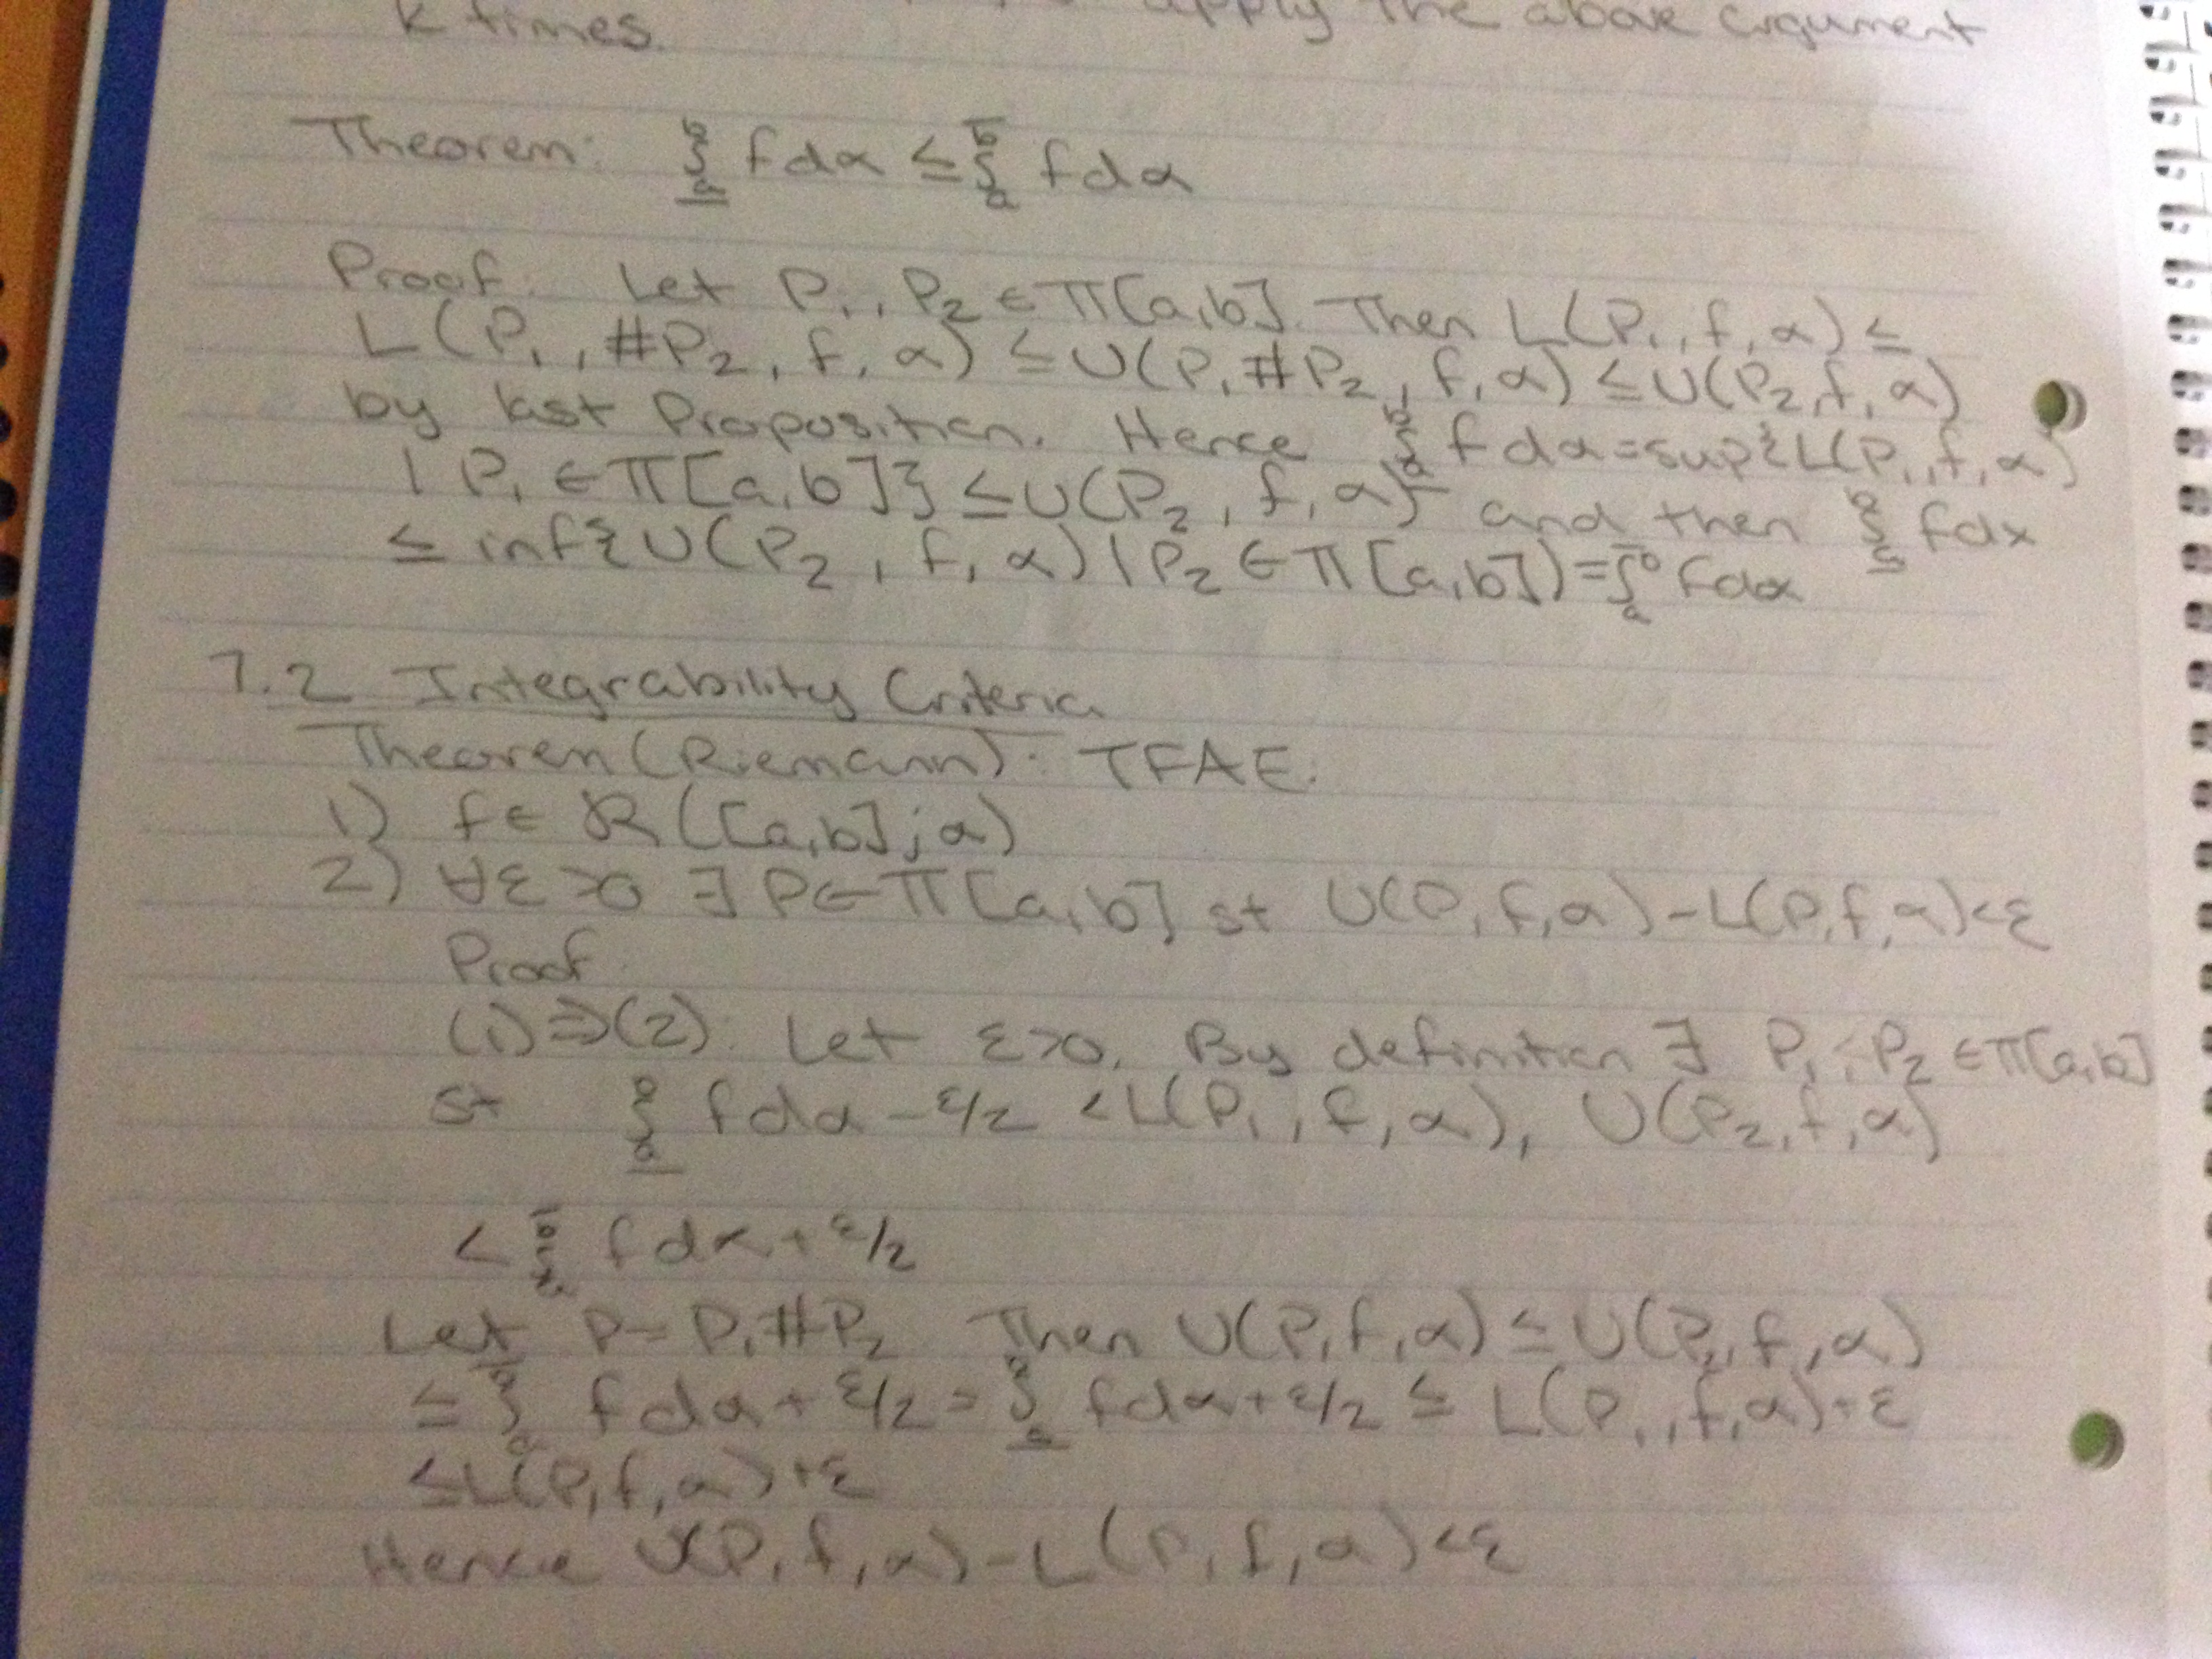 k times. apply the above argument
Theorem: ∫̲ₐᵇ f dα ≤ ∫̅ₐᵇ f dα
Proof: Let P₁, P₂ ∈ Π[a,b]. Then L(P₁, f, α) ≤
L(P₁, #P₂, f, α) ≤ U(P₁#P₂, f, α) ≤ U(P₂, f, α)
by last Proposition. Hence ∫̲ₐᵇ f dα = sup{L(P₁, f, α)
| P₁ ∈ Π[a,b]} ≤ U(P₂, f, α) and then ∫̲ₐᵇ f dx
≤ inf{U(P₂, f, α) | P₂ ∈ Π[a,b]) = ∫̅ₐᵇ f dα
7.2 Integrability Criteria
Theorem (Riemann): TFAE:
1) f ∈ R([a,b]; α)
2) ∀ε > 0 ∃ P ∈ Π[a,b] st U(P, f, α) - L(P, f, α) < ε
Proof:
(1) ⇒ (2): Let ε > 0. By definition ∃ P₁, P₂ ∈ Π[a,b]
st ∫̲ₐᵇ f dα - ε/2 < L(P₁, f, α), U(P₂, f, α)
< ∫̅ₐᵇ f dα + ε/2
Let P = P₁#P₂ Then U(P, f, α) ≤ U(P₂, f, α)
≤ ∫̅ₐᵇ f dα + ε/2 = ∫̲ₐᵇ f dα + ε/2 ≤ L(P₁, f, α) + ε
≤ L(P, f, α) + ε
Hence U(P, f, α) - L(P, f, α) < ε